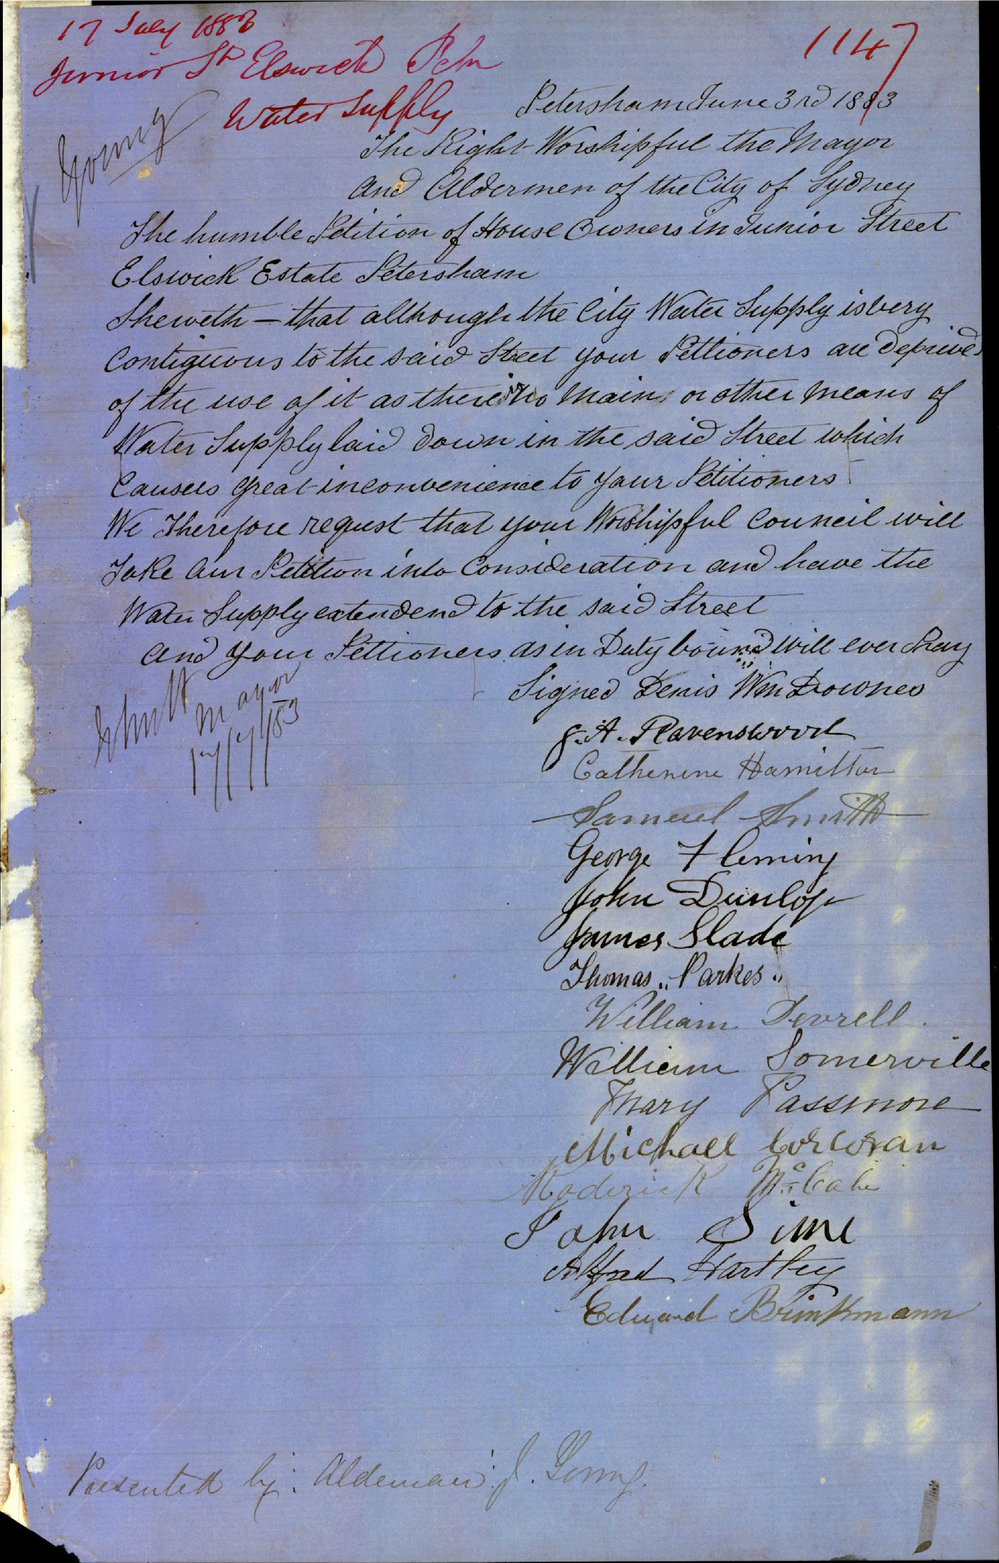 17 July 1883
Junior St Elswick Petm
Water Supply
1147
Young
Petersham June 3rd 1883
The Right Worshipful the Mayor
and Aldermen of the City of Sydney
The humble Petition of House Owners in Junior Street
Elswick Estate Petersham
Sheweth — that although the City Water Supply is very
Contiguous to the said Street your Pettioners are deprived
of the use of it as there is no Main or other means of
Water Supply laid down in the said Street which
Causes great inconvenience to your Petitioners
We Therefore request that your Worshipful Council will
Take our Petition into Consideration and have the
Water Supply extendend to the said Street
and your Pettioners as in Duty bound Will ever Pray
Mayor
17/7/83
Signed Denis Wm Downes
J. A. Ravenswood
Catherine Hamilton
Samuel Smith
George Fleming
John Dunlop
James Slade
Thomas Parkes
William Deverell
William Somerville
Mary Passmore
Michael Corcoran
Roderick McCabe
John Sime
Alfred Hartley
Edward Brinkmann
Presented by: Alderman J. Young.